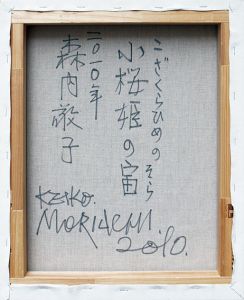 こざくらひめのそら
小桜姫の宙
二〇一〇年
森内敬子
KEIKO.
MORIUCHI
2010.